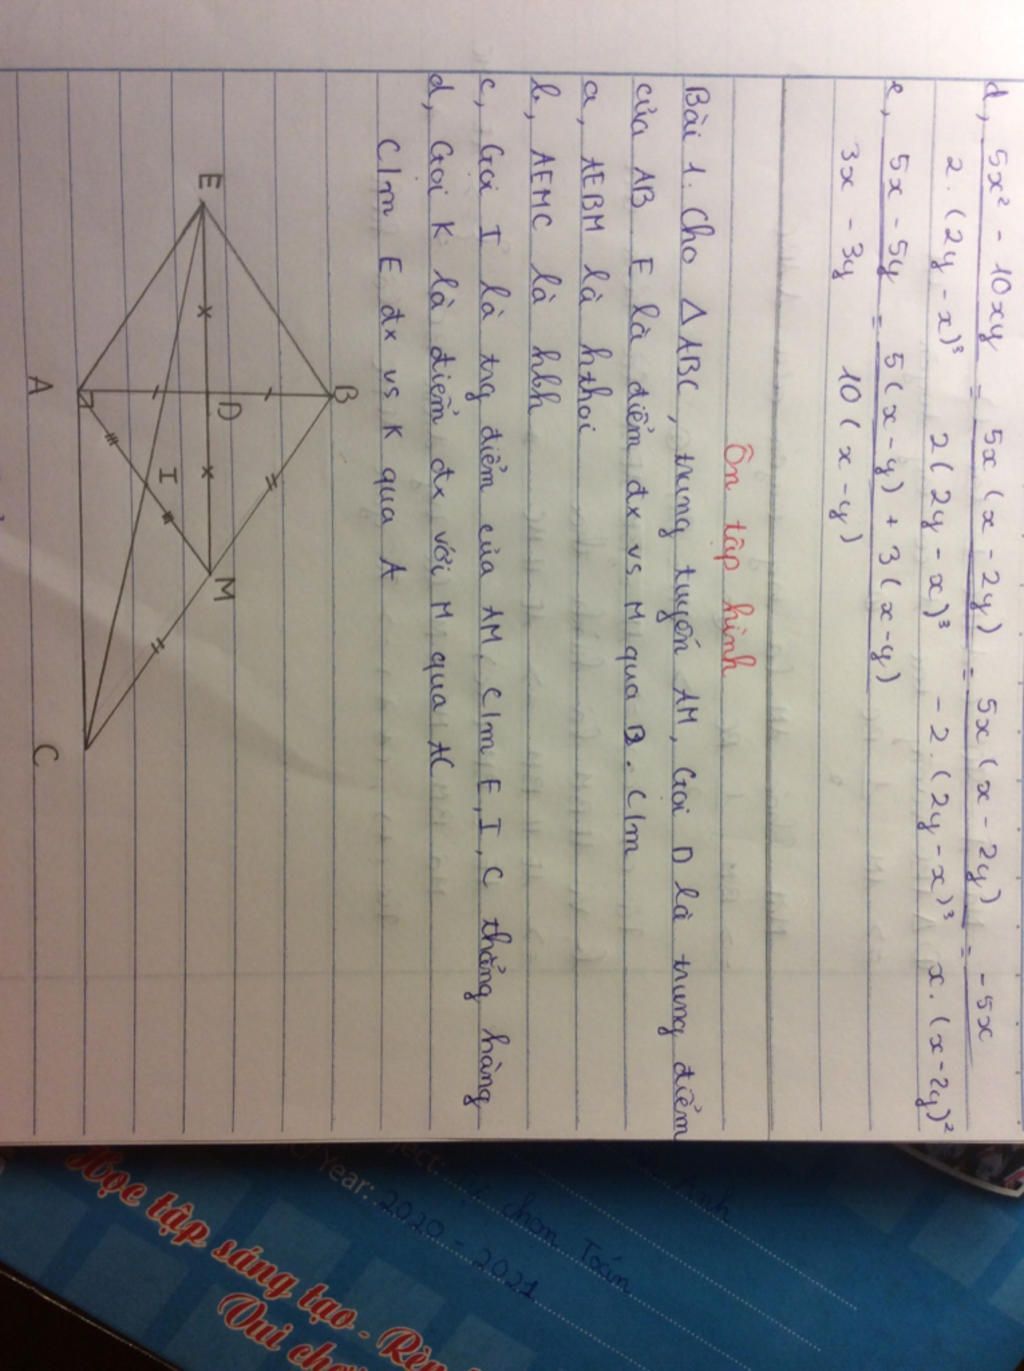 d, 5x² - 10xy = 5x(x - 2y) = 5x(x - 2y) = -5x
2.(2y - x)³ 2(2y - x)³ -2.(2y - x)³ x.(x-2y)²
e, 5x - 5y = 5(x-y) + 3(x-y)
3x - 3y 10(x-y)
Ôn tập hình
Bài 1. Cho △ABC, trung tuyến AM, Gọi D là trung điểm
của AB E là điểm đx vs M qua D. C/m
a, AEBM là hthoi
b, AEMC là hbh
c, Gọi I là trg điểm của AM, C/m E, I, C thẳng hàng
d, Gọi K là điểm đx với M qua AC
C/m E đx vs K qua A
B
E
D
M
I
A
C
Anh
ject: Tự chọn Toán
/Year: 2020 - 2021
Học tập sáng tạo - Rèn
Vui chơi